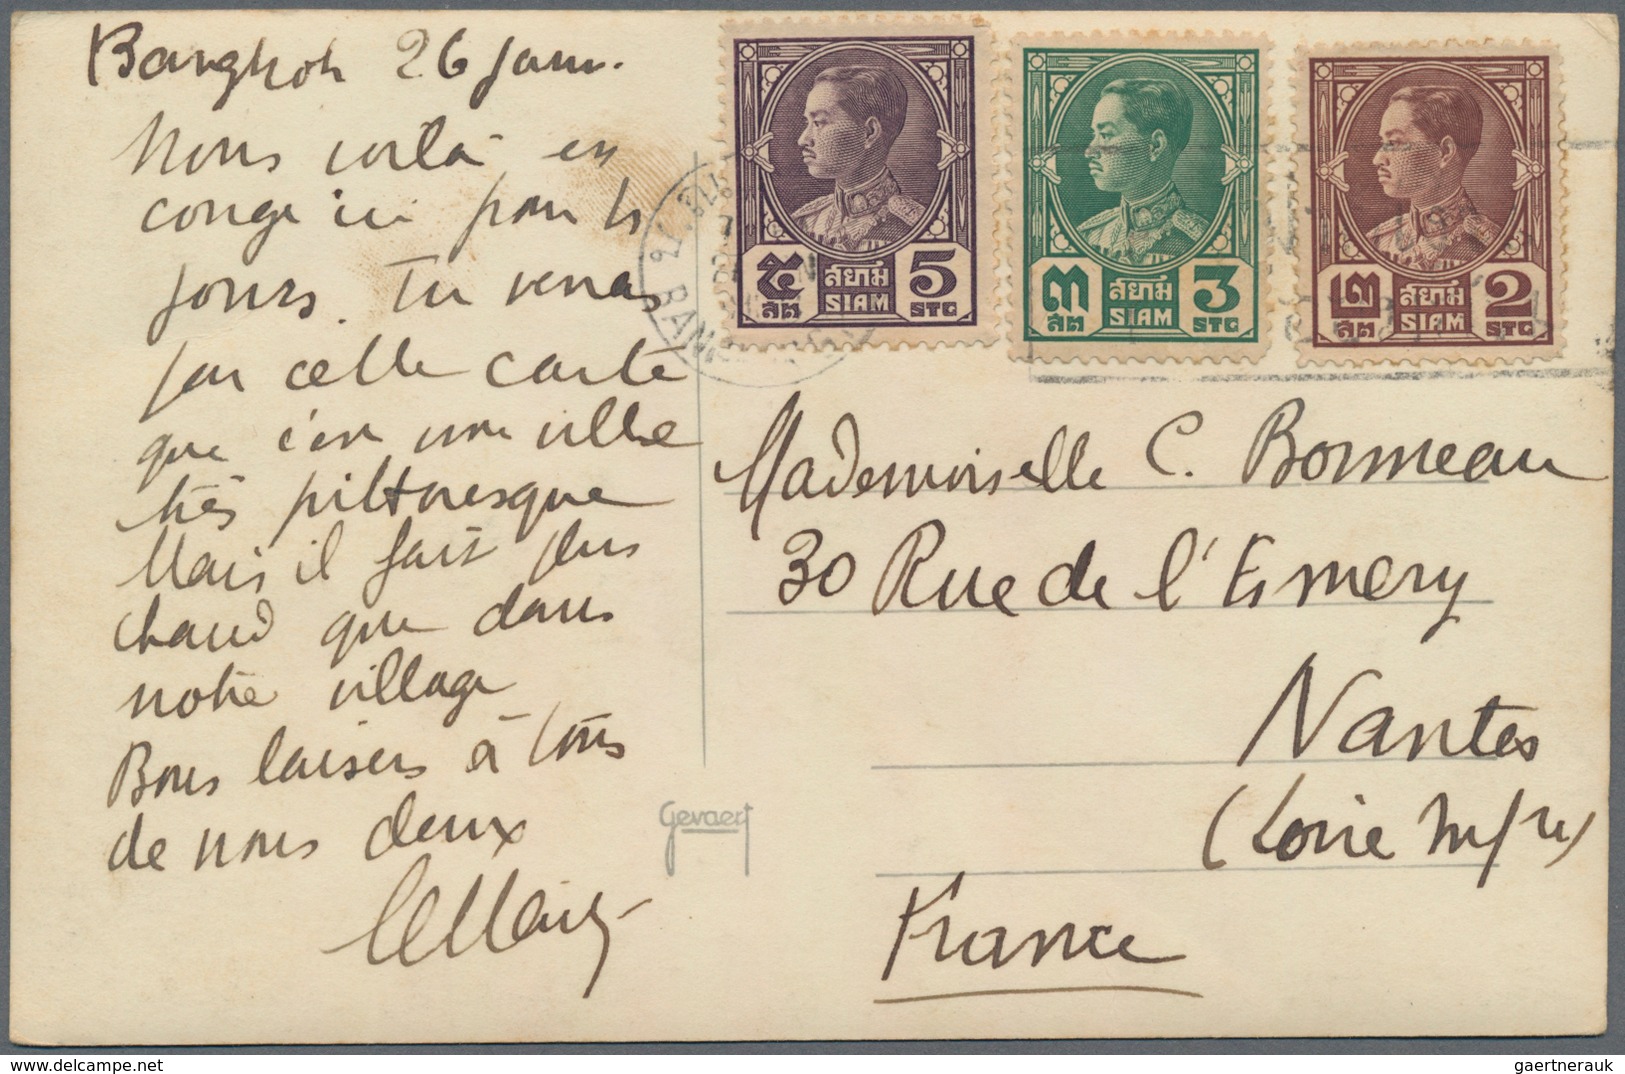 Bangkok 26 janv.
Nous voilà en
congé ici pour 15
jours. Tu verras
par cette carte
que c'est une ville
très pittoresque
Mais il fait plus
chaud que dans
notre village
Bons baisers à tous
de nous deux
สยาม
SIAM
๕
สต
5
STG
สยาม
SIAM
๓
สต
3
STG
สยาม
SIAM
๒
สต
2
STG
Mademoiselle C. Bonneau
30 Rue de l'Emery
Nantes
(Loire Infre)
France
Gevaert
Delcampe.net
gaertnerauk